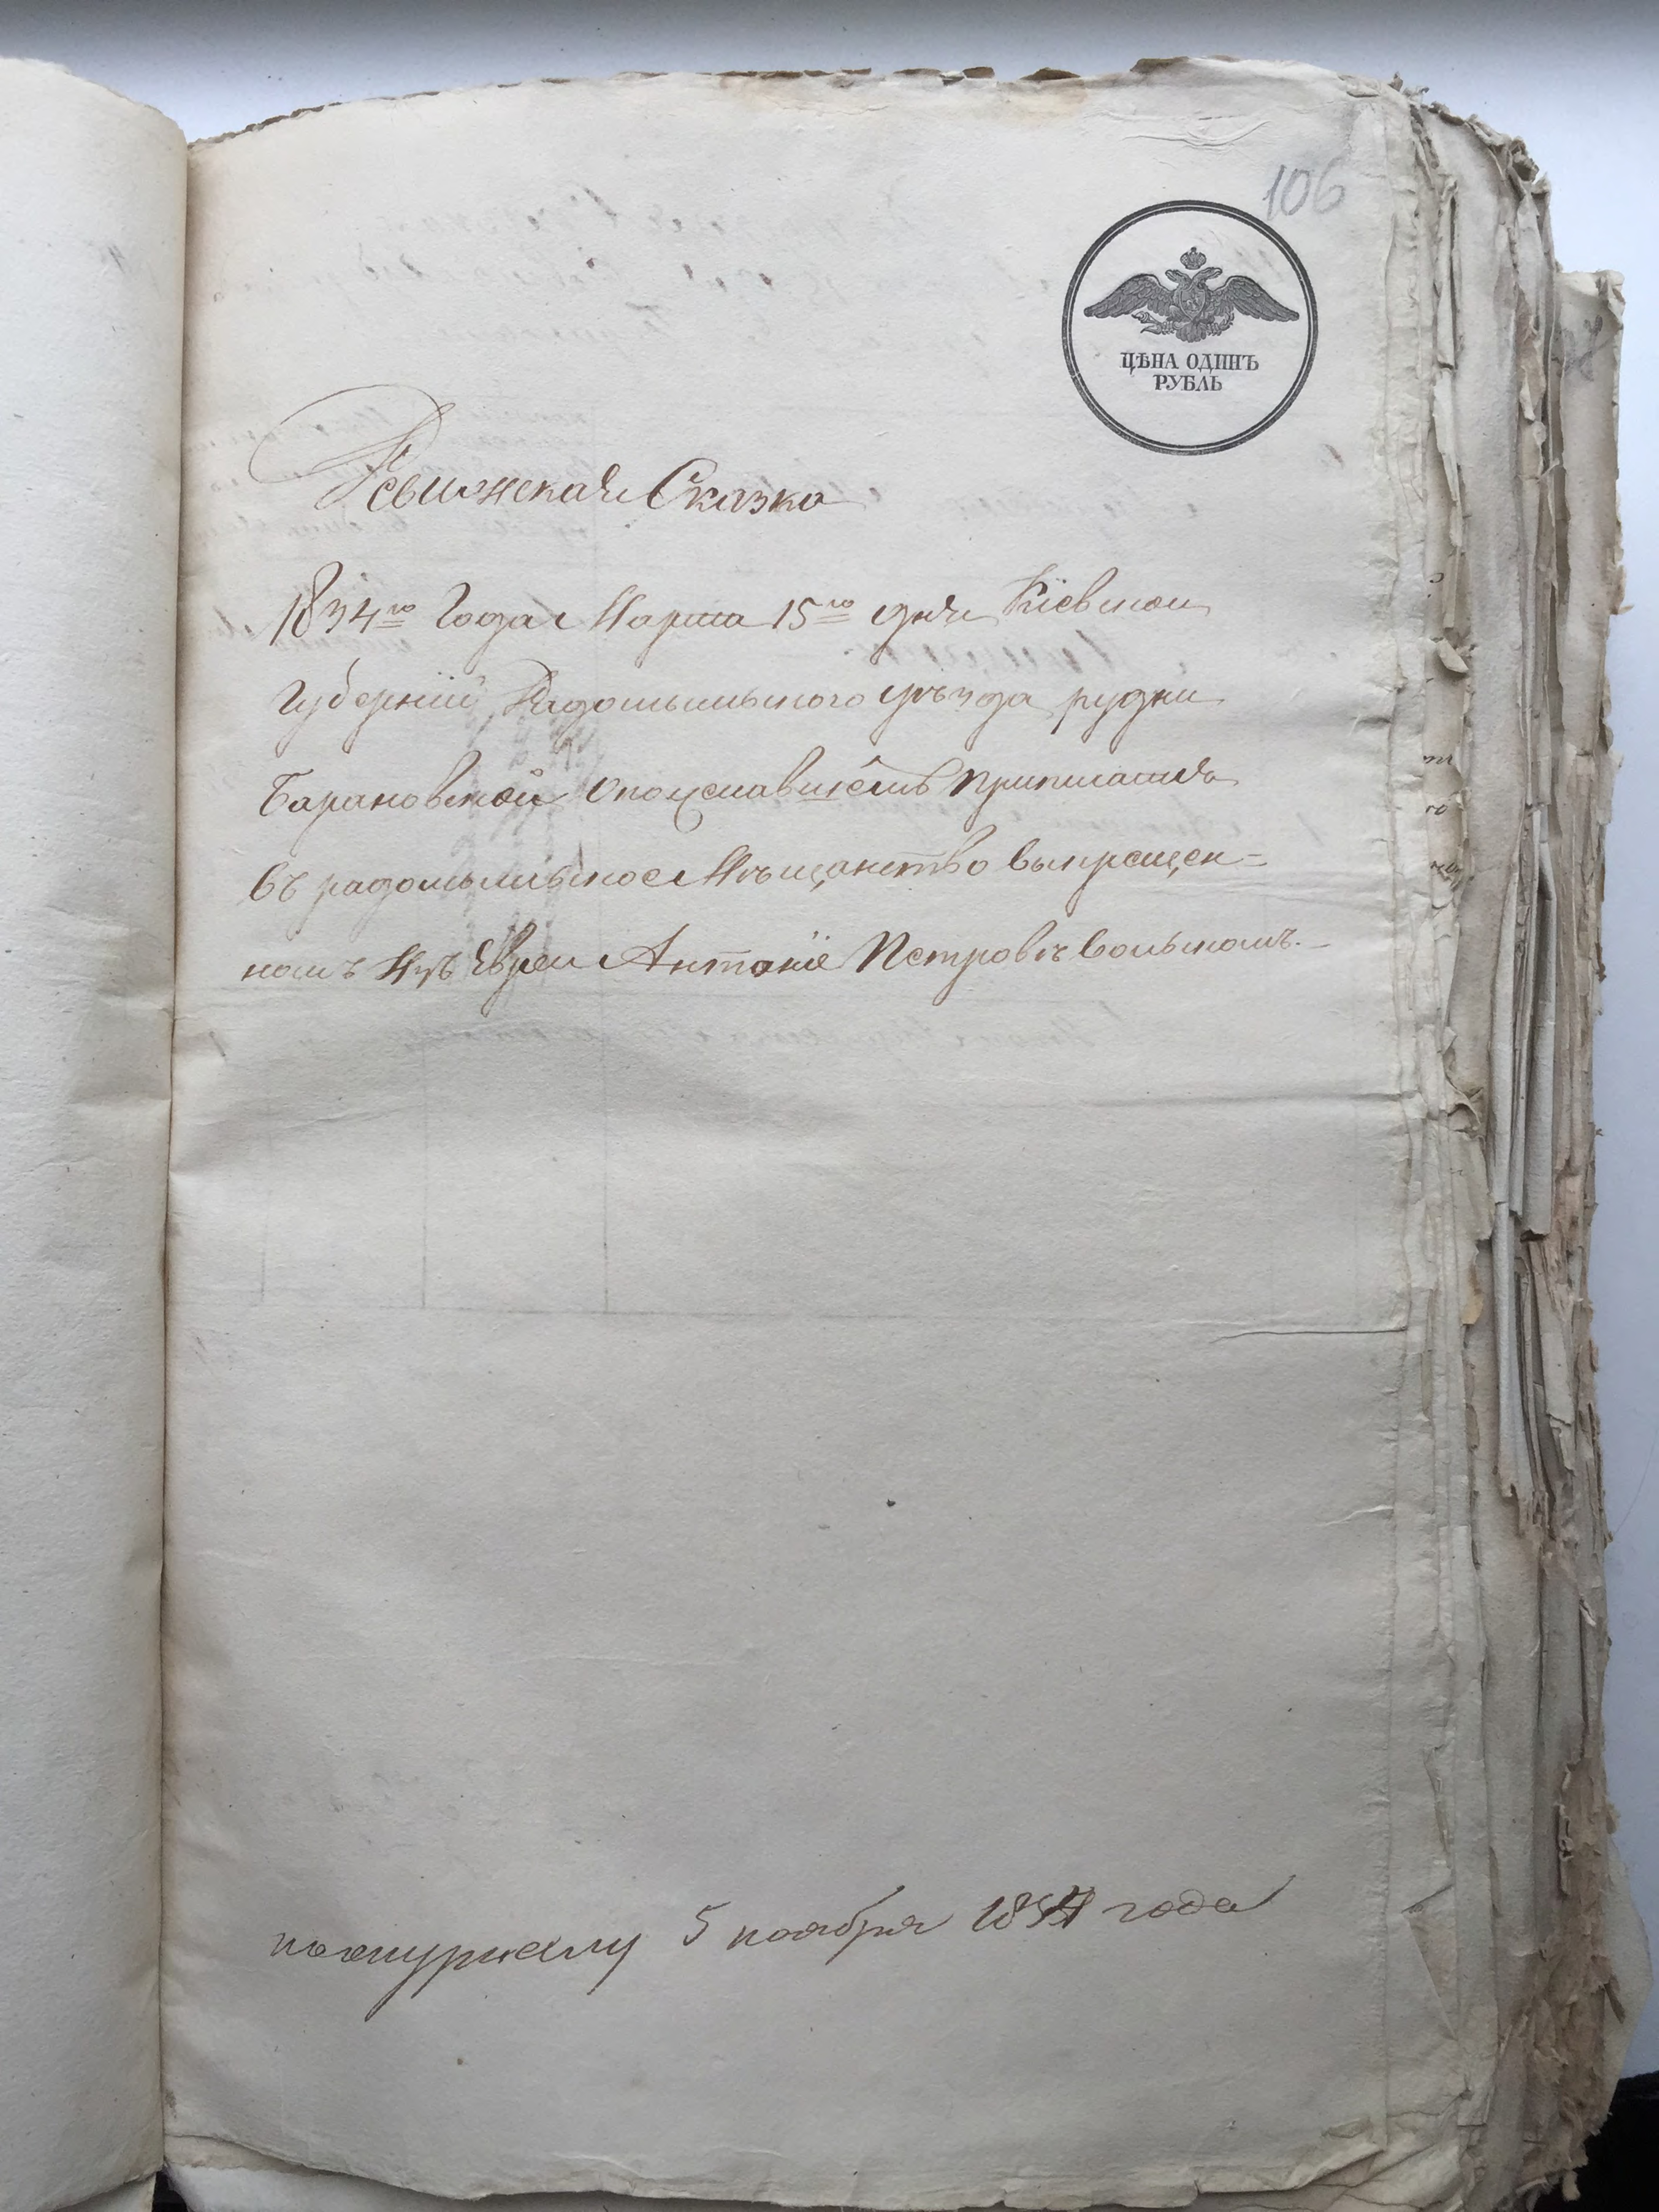 106
ЦѢНА ОДИНЪ
РУБЛЬ
Ревижская Сказка
1834го Года Марта 15го дня Кіевской
Губерніи Радомысльского уѣзда рудни
Барановской о пожелавшемъ приписатся
въ радомысльское Мѣщанство выкрещен=
номъ Изъ Евреи Антоніе Петровѣ Вольскомъ.
по журналу 5 ноября 1834 года